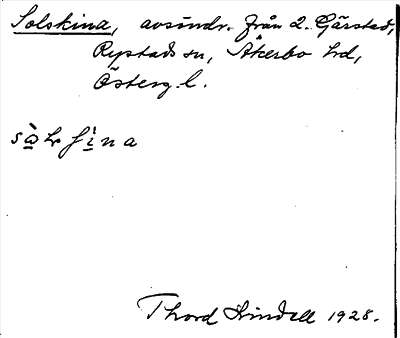 Solskina, avsöndr. från 2. Gärstad,
Rystads sn, Åkerbo hd,
Österg. l.
Thord Lindell 1928.